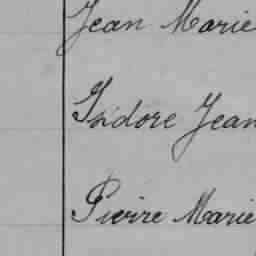 Jean Marie
Isidore Jean
Pierre Marie